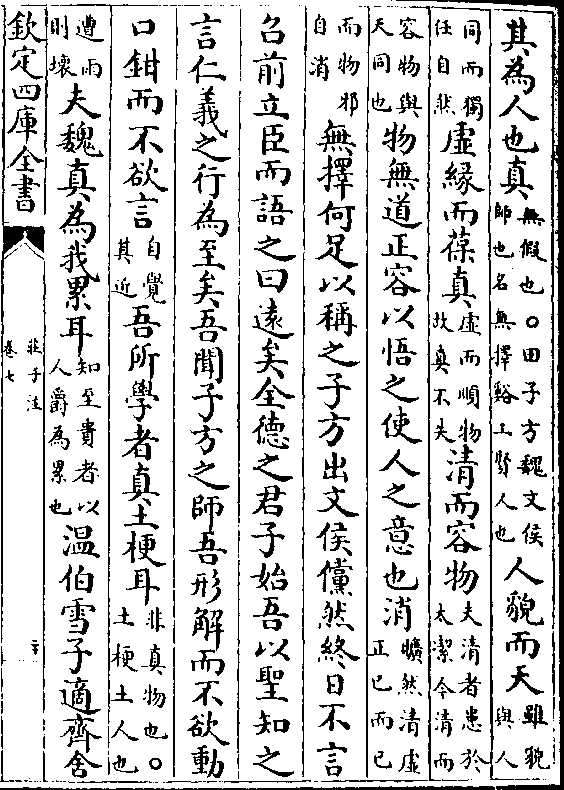 其為人也真無假也○田子方魏文侯師也名無擇谿工賢人也人貌而天雖貌與人
同而獨任自然虛緣而葆真虛而順物故真不失清而容物夫清者患於太潔今清而
容物與天同也物無道正容以悟之使人之意也消曠然清虛正已而已
而物邪自消無擇何足以稱之子方出文侯儻然終日不言
召前立臣而語之曰遠矣全德之君子始吾以聖知之
言仁義之行為至矣吾聞子方之師吾形解而不欲動
口鉗而不欲言自覺其近吾所學者真土梗耳非真物也○土梗土人也
遭雨則壞夫魏真為我累耳知至貴者以人爵為累也温伯雪子適齊舍
欽定四庫全書
莊子注
卷七
二十